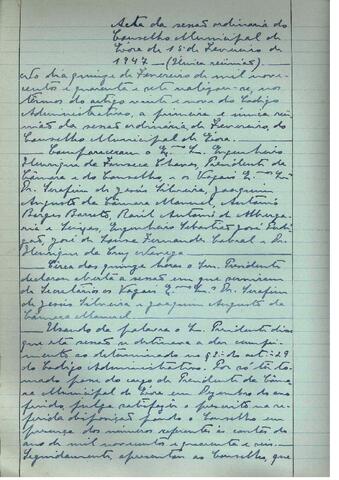 Acta da sessão ordinaria do
Conselho Municipal de
Evora de 15 de Fevereiro de
1947 — (Unica reunião). —
Ao dia quinze de Fevereiro de mil nove-
centos e quarenta e sete realizou-se, nos
termos do artigo vinte e nove do Codigo
Administrativo, a primeira e unica reu-
nião da sessão ordinaria de Fevereiro, do
Conselho Municipal de Evora.
Compareceram o Ex.mo Sr. Engenheiro
Henrique da Fonseca Chaves, Presidente da
Câmara e do Conselho, e os Vogais Ex.mos Srs.
Dr. Serafim de Jesus Silveira, Joaquim
Augusto da Câmara Manuel, António
Borges Barreto, Raúl António de Alberga-
ria e Seixas, Engenheiro Sebastião José
José de Sousa Fernandes Cabral e Dr.
Henrique da
Cerca das quinze horas o Sr. Presidente
declarou aberta a sessão em que serviram
de Secretários os Vogais Ex.mos Srs. Dr. Serafim
de Jesus Silveira e Joaquim Augusto da
Câmara Manuel —
Usando da palavra o Sr. Presidente disse
que esta sessão se destinava a dar cumpri-
mento ao determinado no § 2º do artº 29
do Codigo Administrativo. Por só ter to-
mado posse do cargo de Presidente da Câma-
ra Municipal de Evora em Dezembro do ano
findo, julga satisfazer o prescrito na re-
ferida disposição pondo o Conselho em
presença dos números referentes às contas do
ano de mil novecentos e quarenta e seis.
Seguidamente apresentou ao Conselho, que